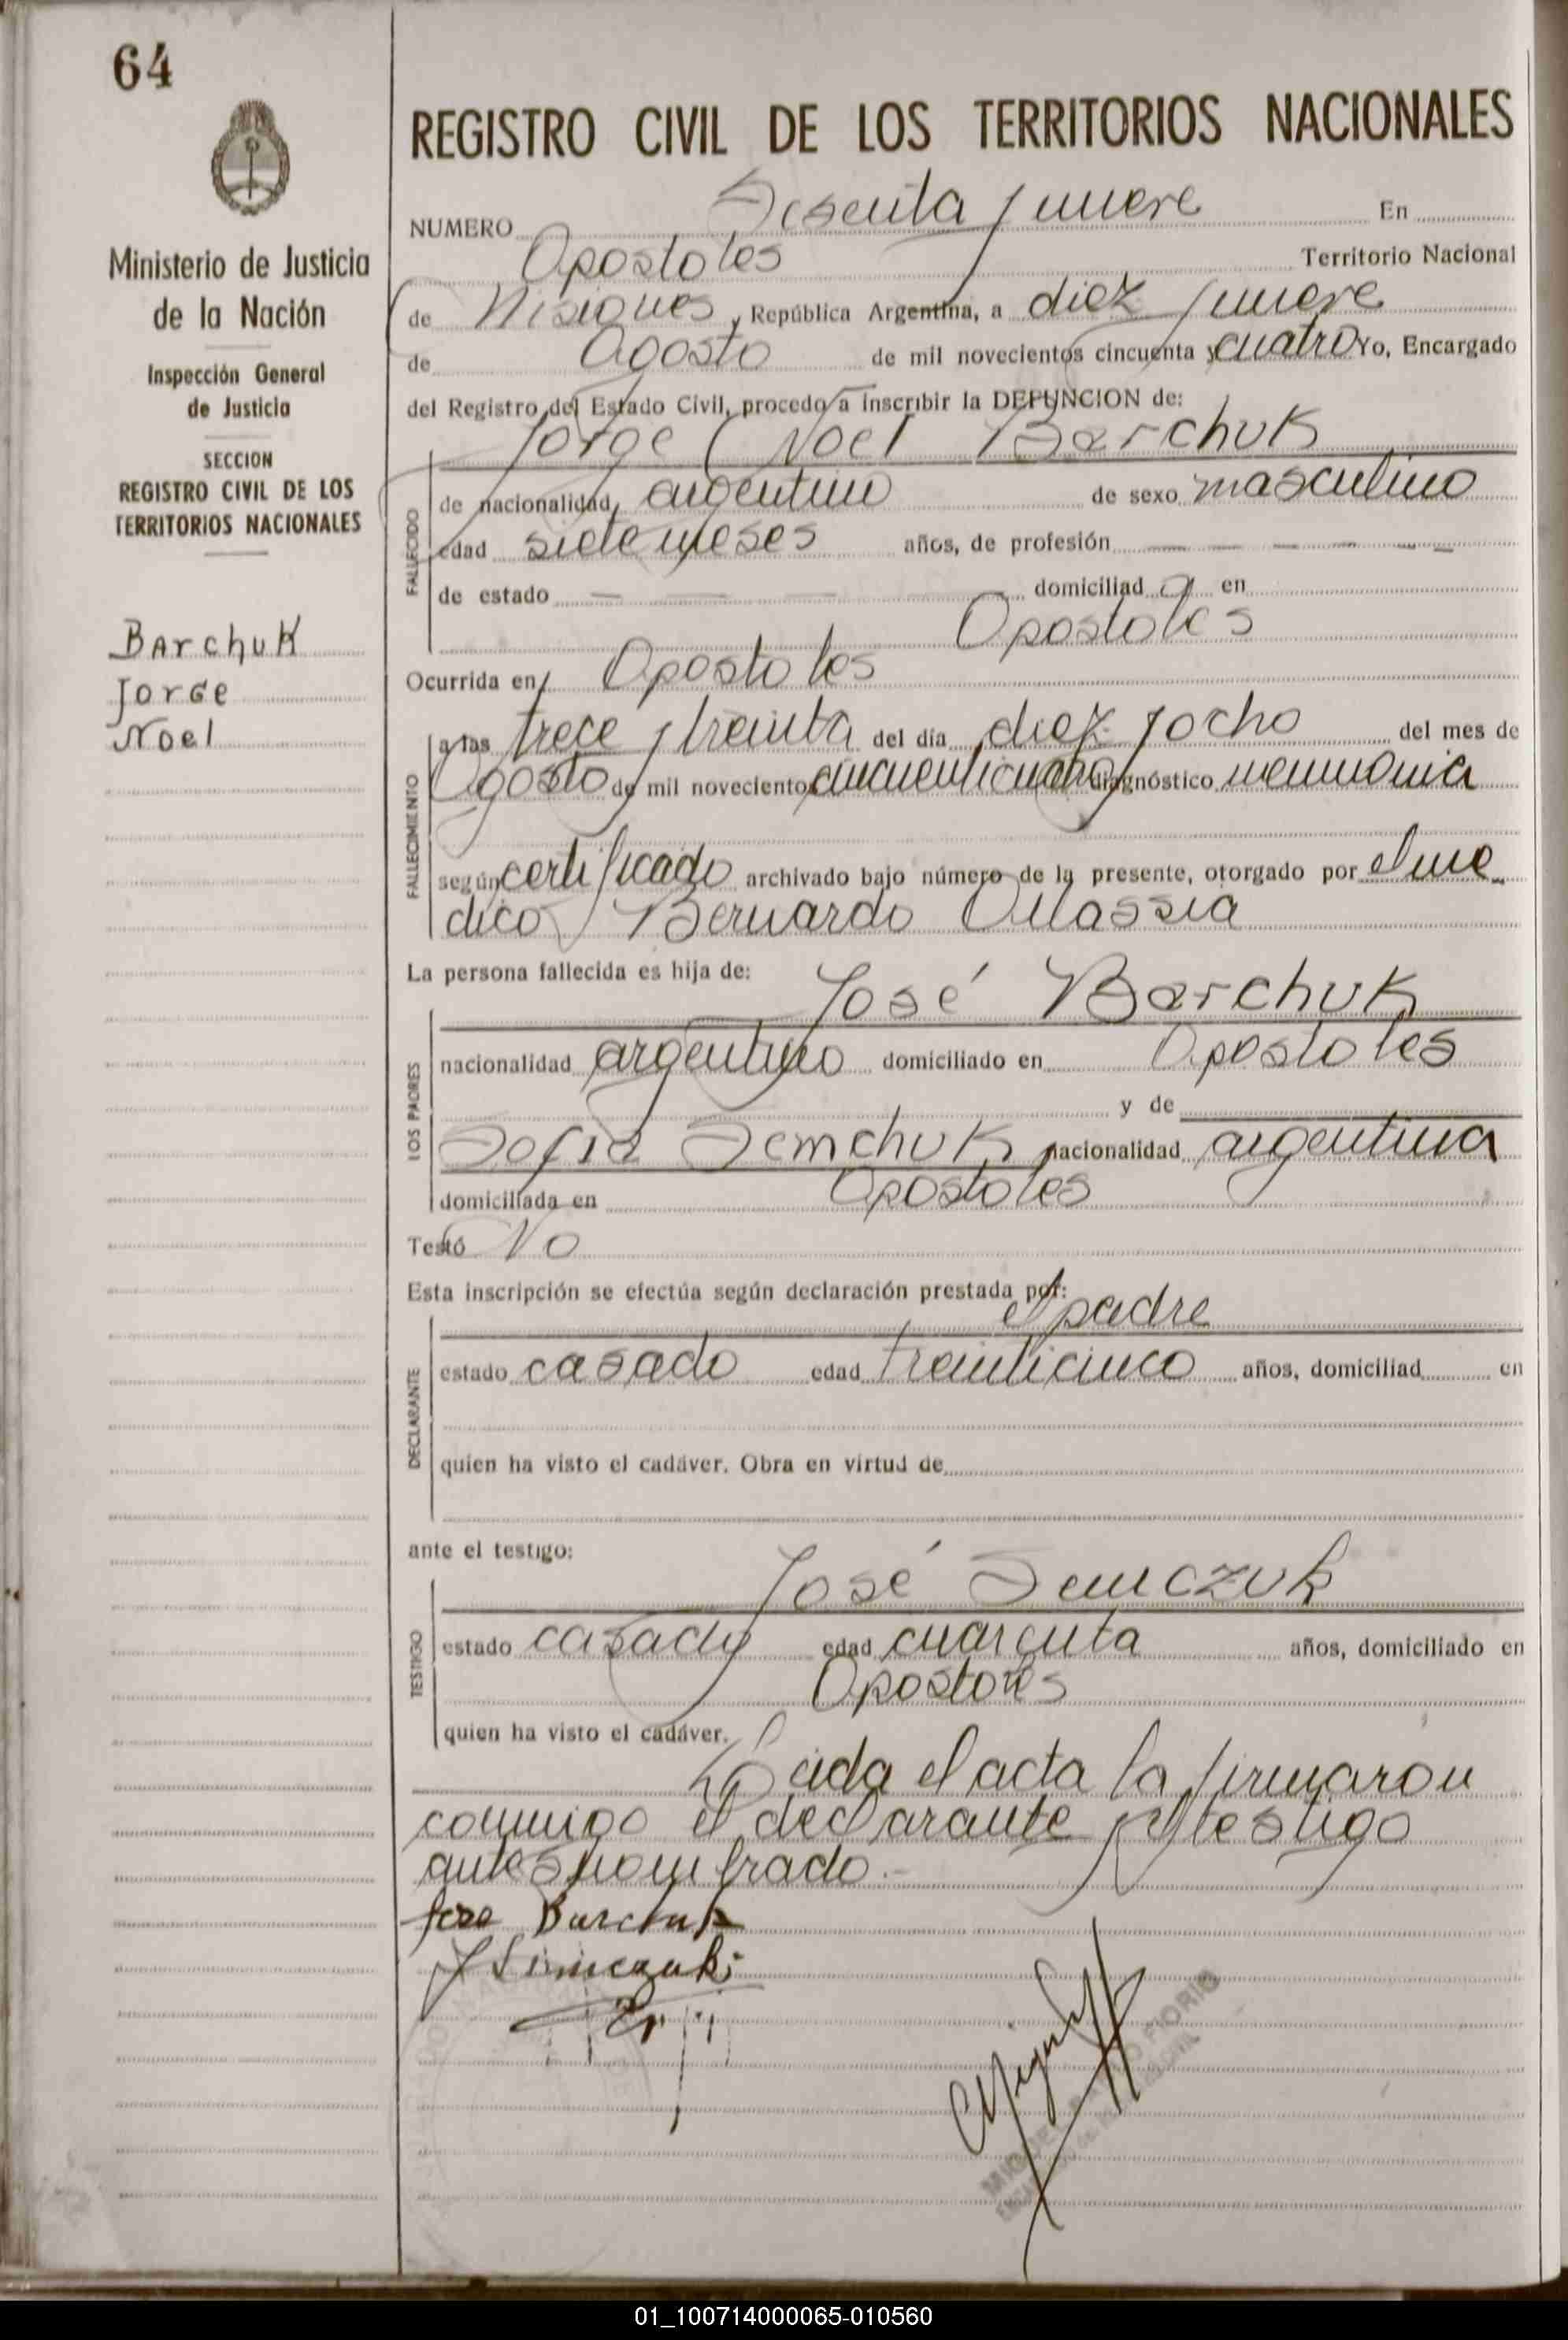 64
Ministerio de Justicia
de la Nación
Inspección General
de Justicia
SECCION
REGISTRO CIVIL DE LOS
TERRITORIOS NACIONALES
Barchuk
Jorge
Noel
REGISTRO CIVIL DE LOS TERRITORIOS NACIONALES
NUMERO Sesenta y nueve En
Apostoles Territorio Nacional
de Misiones, República Argentina, a diez y nueve
de Agosto de mil novecientos cincuenta y cuatro Yo, Encargado
del Registro del Estado Civil, procedo a inscribir la DEFUNCION de:
Jorge Noel Barchuk
FALLECIDO
de nacionalidad argentino de sexo masculino
edad siete meses años, de profesión
de estado domiciliad o en
Apostoles
Ocurrida en Apostoles
FALLECIMIENTO
a las trece y treinta del día diez y ocho del mes de
Agosto de mil novecientos cincuenticuatro diagnóstico neumonia
según certificado archivado bajo número de la presente, otorgado por el me
dico Bernardo
La persona fallecida es hija de:
José Barchuk
LOS PADRES
nacionalidad argentino domiciliado en Apostoles
y de
Sofia Semchuk nacionalidad argentina
domiciliada en Apostoles
Testó No
Esta inscripción se efectúa según declaración prestada por:
el padre
DECLARANTE
estado casado edad treinticinco años, domiciliad en
quien ha visto el cadáver. Obra en virtud de
ante el testigo:
José Semczuk
TESTIGO
estado casado edad cuarenta años, domiciliado en
Apostoles
quien ha visto el cadáver.
Leida el acta la firmaron
conmigo el declarante y el testigo
antes nombrado.-
Jose Barchuk
J Semczuk
01_100714000065-010560